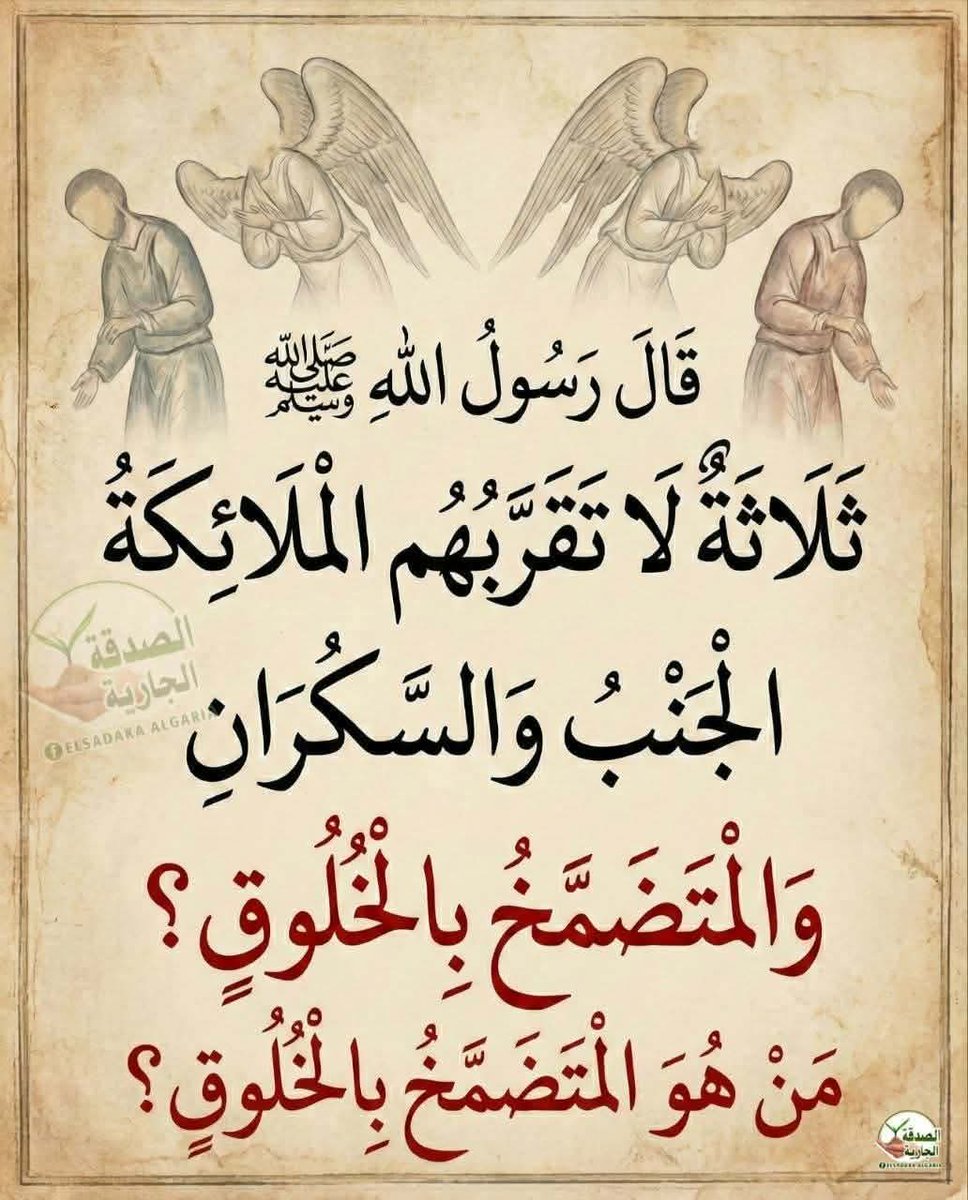 قَالَ رَسُولُ اللهِ ﷺ
ثَلَاثَةٌ لَا تَقَرَّبُهُم الْمَلَائِكَةُ
الْجَنْبُ وَالسَّكُرَانِ
وَالْمَتَضَمَّخُ بِالْخُلُوقٍ؟
مَنْ هُوَ الْمَتَضَمَّخُ بِالْخُلُوقٍ؟
الصدقة
الجارية
ELSADAKA ALGARIA
الصدقة
الجارية
ELSADAKA ALGARIA